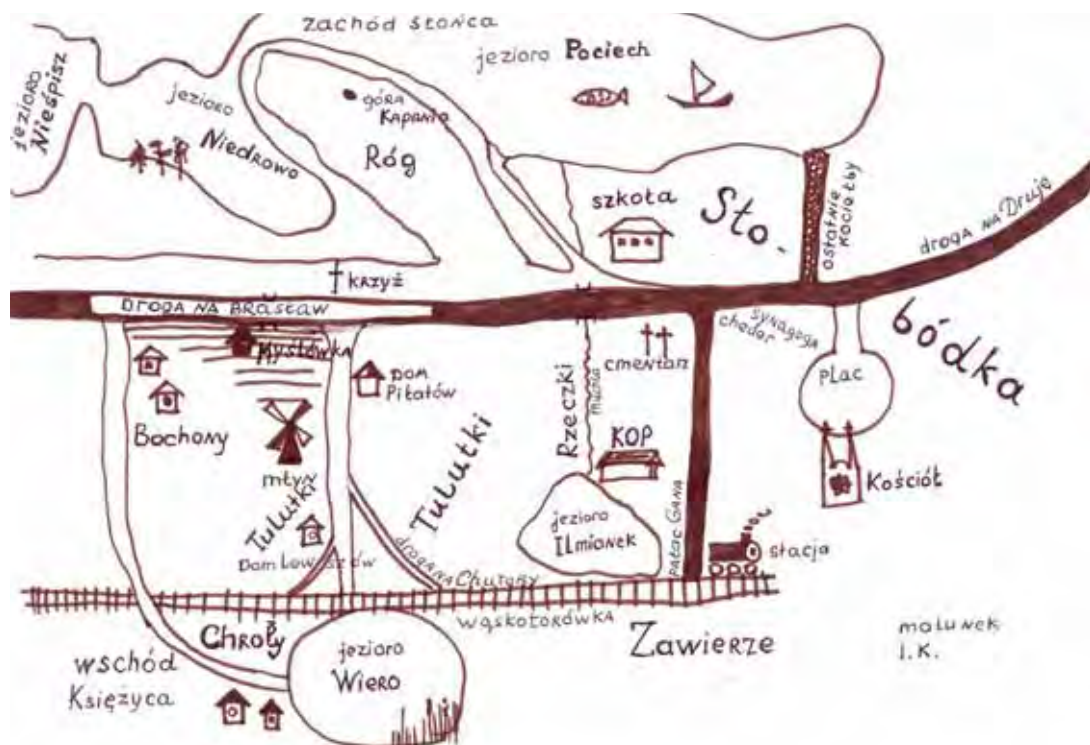 zachód słońca
jezioro Pociech
jezioro
Nieśpisz
jezioro
Niedrowo
góra
Kapania
Róg
szkoła
Sło-
bódka
ostatnie
kociełby
droga na Druję
krzyż
DROGA NA BRASŁAW
Myslówka
DOM
Piłatów
Bochony
młyn
Tulutki
Tulutki
Dom Low szów
droga na Chutory
Rzeczki
cmentarz
KOP
jezioro
Ilmianek
pałac Gana
synagoga
cheder
plac
Kościół
stacja
wąskotorówka
Zawierze
Chroły
jezioro
Wiero
wschód
Księżyca
malunek
I.K.